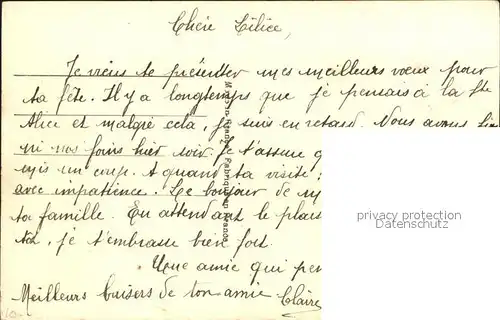 Chère Lilice,
Je viens te présenter mes meilleurs vœux pour
ta fête. Il y a longtemps que je pensais à la Ste
Alice et malgré cela, je suis en retard. Nous avons
ni nos foins hier soir. Je t'assure
mis un coup. A quand ta visite
avec impatience. Le bonjour de
ta famille. En attendant le plais
toi, je t'embrasse bien fort
Une amie qui pen
Meilleurs baisers de ton amie Claire
privacy protection
Datenschutz